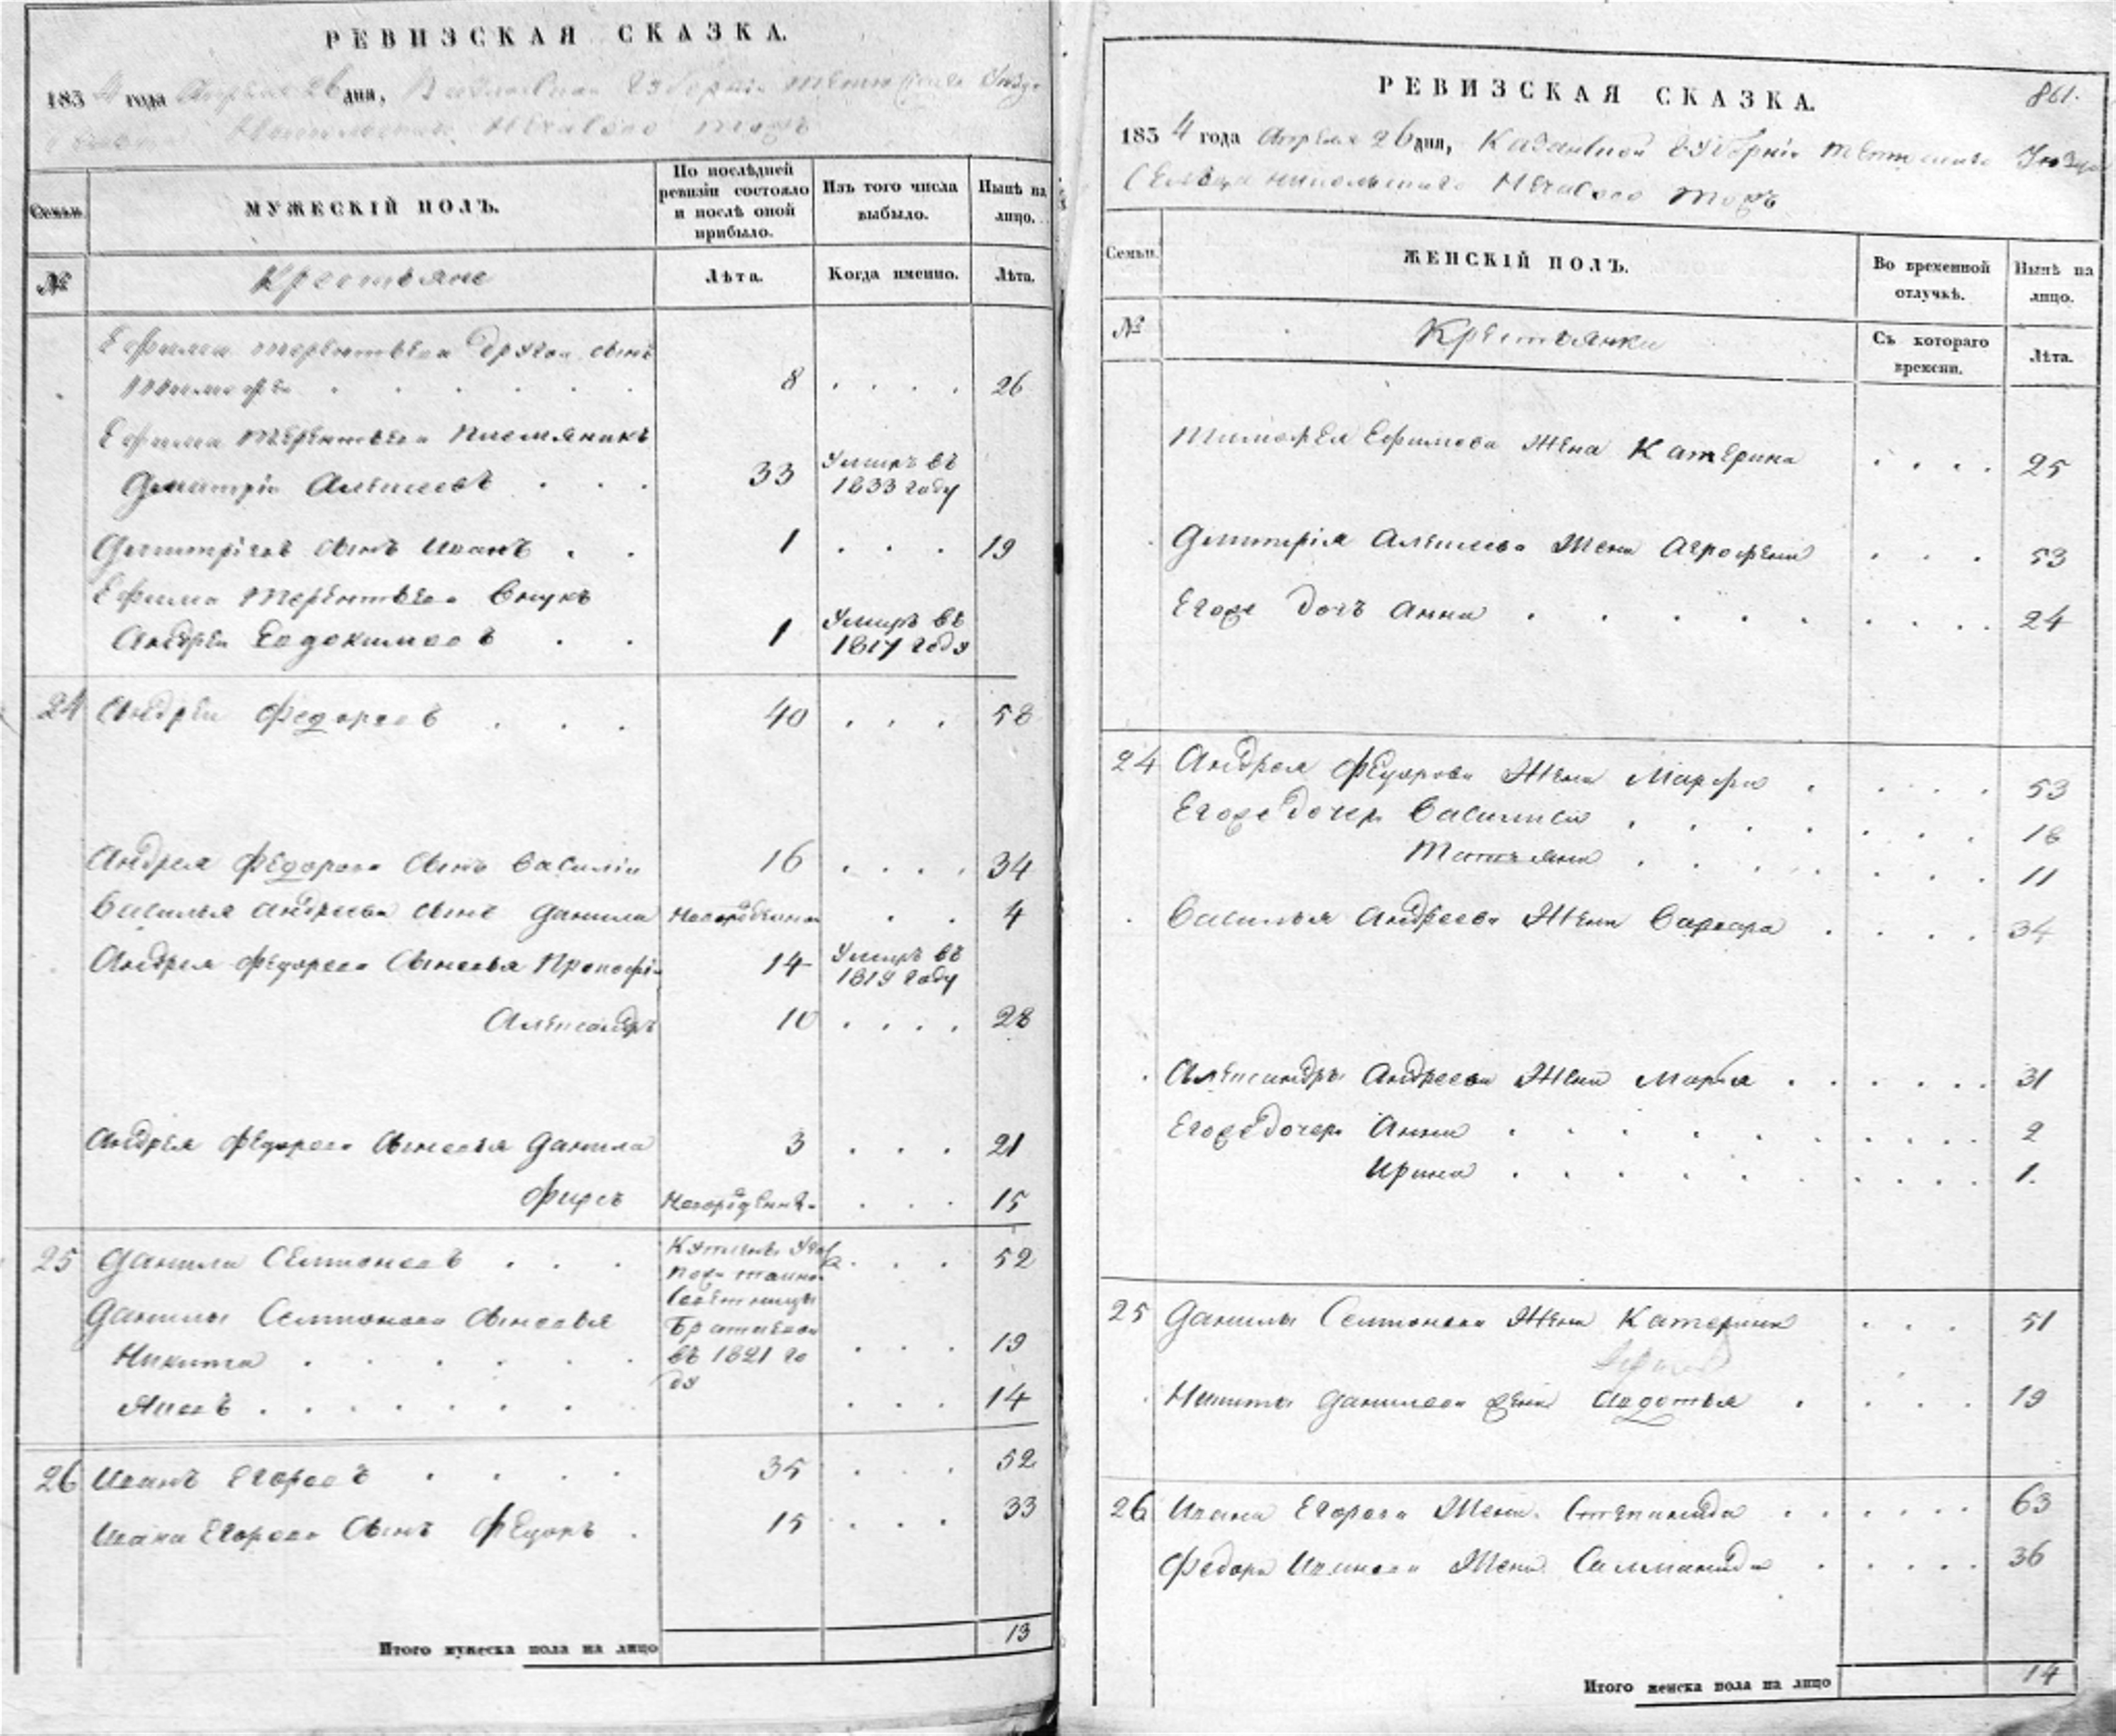 РЕВИЗСКАЯ СКАЗКА.
1834 года Апреля 26 дня, Казанской Губернiи Тетюшскаго Уѣзда
Нечасово тожъ
Семьи.
МУЖЕСКІЙ ПОЛЪ.
По послѣдней ревизіи состояло и послѣ оной прибыло.
Изъ того числа выбыло.
Нынѣ на лицо.
№
Крестьяне
Лѣта.
Когда именно.
Лѣта.
Ефима Терентьева другой сынъ
Тимофей . . . . . . 8 . . . . 26
Ефима Терентьева племяникъ
Дмитрiй Алексеевъ . . . 33 Умеръ въ 1833 году
Дмитрiевъ сынъ Иванъ . . 1 . . . 19
Ефима Терентьева внукъ
Андрей Евдокимовъ . . 1 Умеръ въ 1817 году
24 Андрей Федоровъ . . . 40 . . . 58
Андрея Федорова сынъ Василiй 16 . . . . 34
Василья Андреева сынъ Данила новорожденной . . 4
Андрея Федорова сыновья Прокофiй 14 Умеръ въ 1819 году
Александръ 10 . . . . 28
Андрея Федорова сыновья Данила 3 . . . 21
Фирсъ новорожденной . . . 15
25 Данила Семионовъ . . . 52
Данилы Семионова сыновья
Никита . . . . . . . . . 19
Яковъ . . . . . . . . . . 14
Купленъ у
тайной
советницы
въ 1821 го
ду
26 Иванъ Егоровъ . . . . 35 . . . 52
Ивана Егорова сынъ Федоръ . 15 . . . 33
Итого мужеска пола на лицо 13
861.
РЕВИЗСКАЯ СКАЗКА.
1834 года Апреля 26 дня, Казанской Губернiи Тетюшскаго Уѣзда
Сельца Никольскаго Нечасово тожъ
Семьи.
ЖЕНСКІЙ ПОЛЪ.
Во временной отлучкѣ.
Нынѣ на лицо.
№
Крестьянки
Съ котораго времени.
Лѣта.
Тимофея Ефимова жена Катерина . . . . 25
Дмитрiя Алексеева жена Аграфена . . . 53
Егоже дочь Анна . . . . . . . . . 24
24 Андрея Федорова жена Марфа . . . . . 53
Егоже дочери Василиса . . . . . . . . 18
Татьяна . . . . . . . . 11
Василья Андреева жена Варвара . . . . 34
Александры Андреева жена Марья . . . . . . 31
Егоже дочери Анна . . . . . . . . . . 2
Ирина . . . . . . . . . . 1.
25 Данилы Семионова жена Катерина . . . 51
Никиты Данилова жена Авдотья . . . . 19
26 Ивана Егорова жена Степанида . . . . . . 63
Федора Иванова жена Саломанида . . . . . 36
Итого женска пола на лицо 14